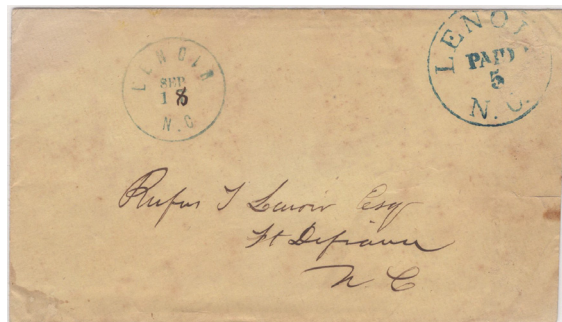 LENOIR
SEP
18
N.C
LENOIR
PAID
5
N.C.
Rufus T Lenoir Esq
Ft Defiance
N C